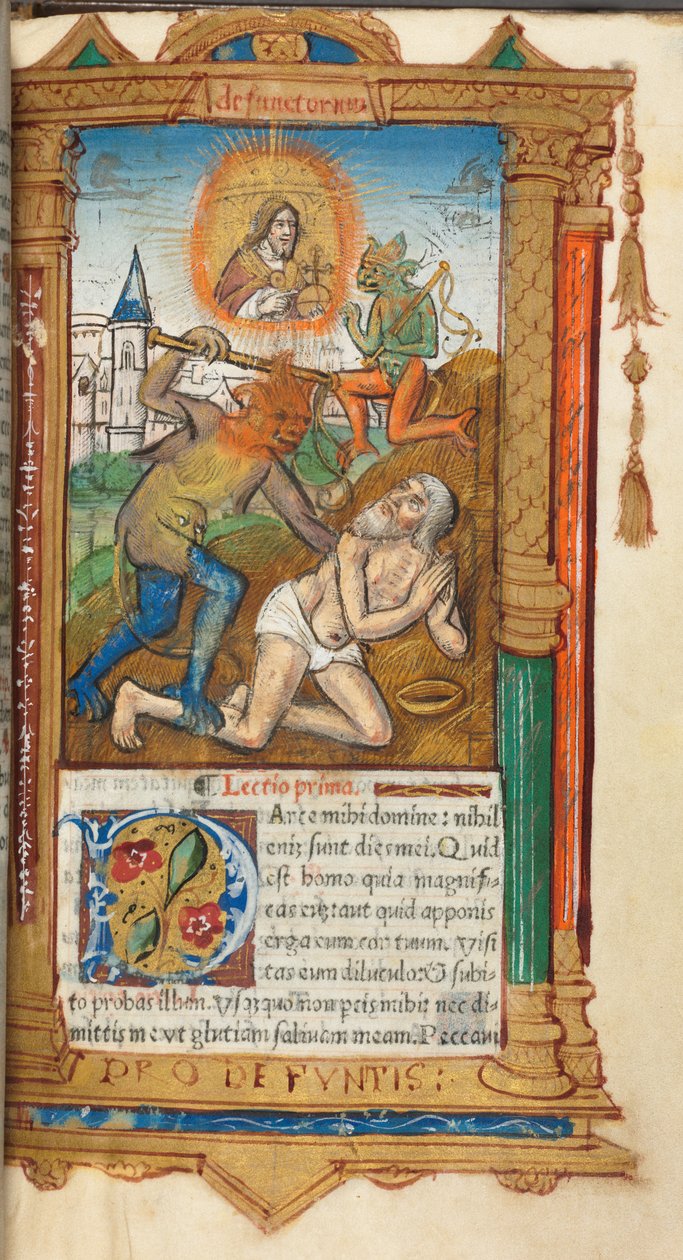 defunctorum
¶ Lectio prima.
PArce mihi domine: nihil
eniȝ sunt dies mei. Quid
est homo quia magnifi-
cas euȝ: aut quid apponis
erga eum cor tuum. Visi
tas eum diluculo: & subi-
to probas illum. Vsqȝ quo non pcis mihi: nec di-
mittis me vt glutiam salivam meam. Peccavi
PRO DEFVNTIS: